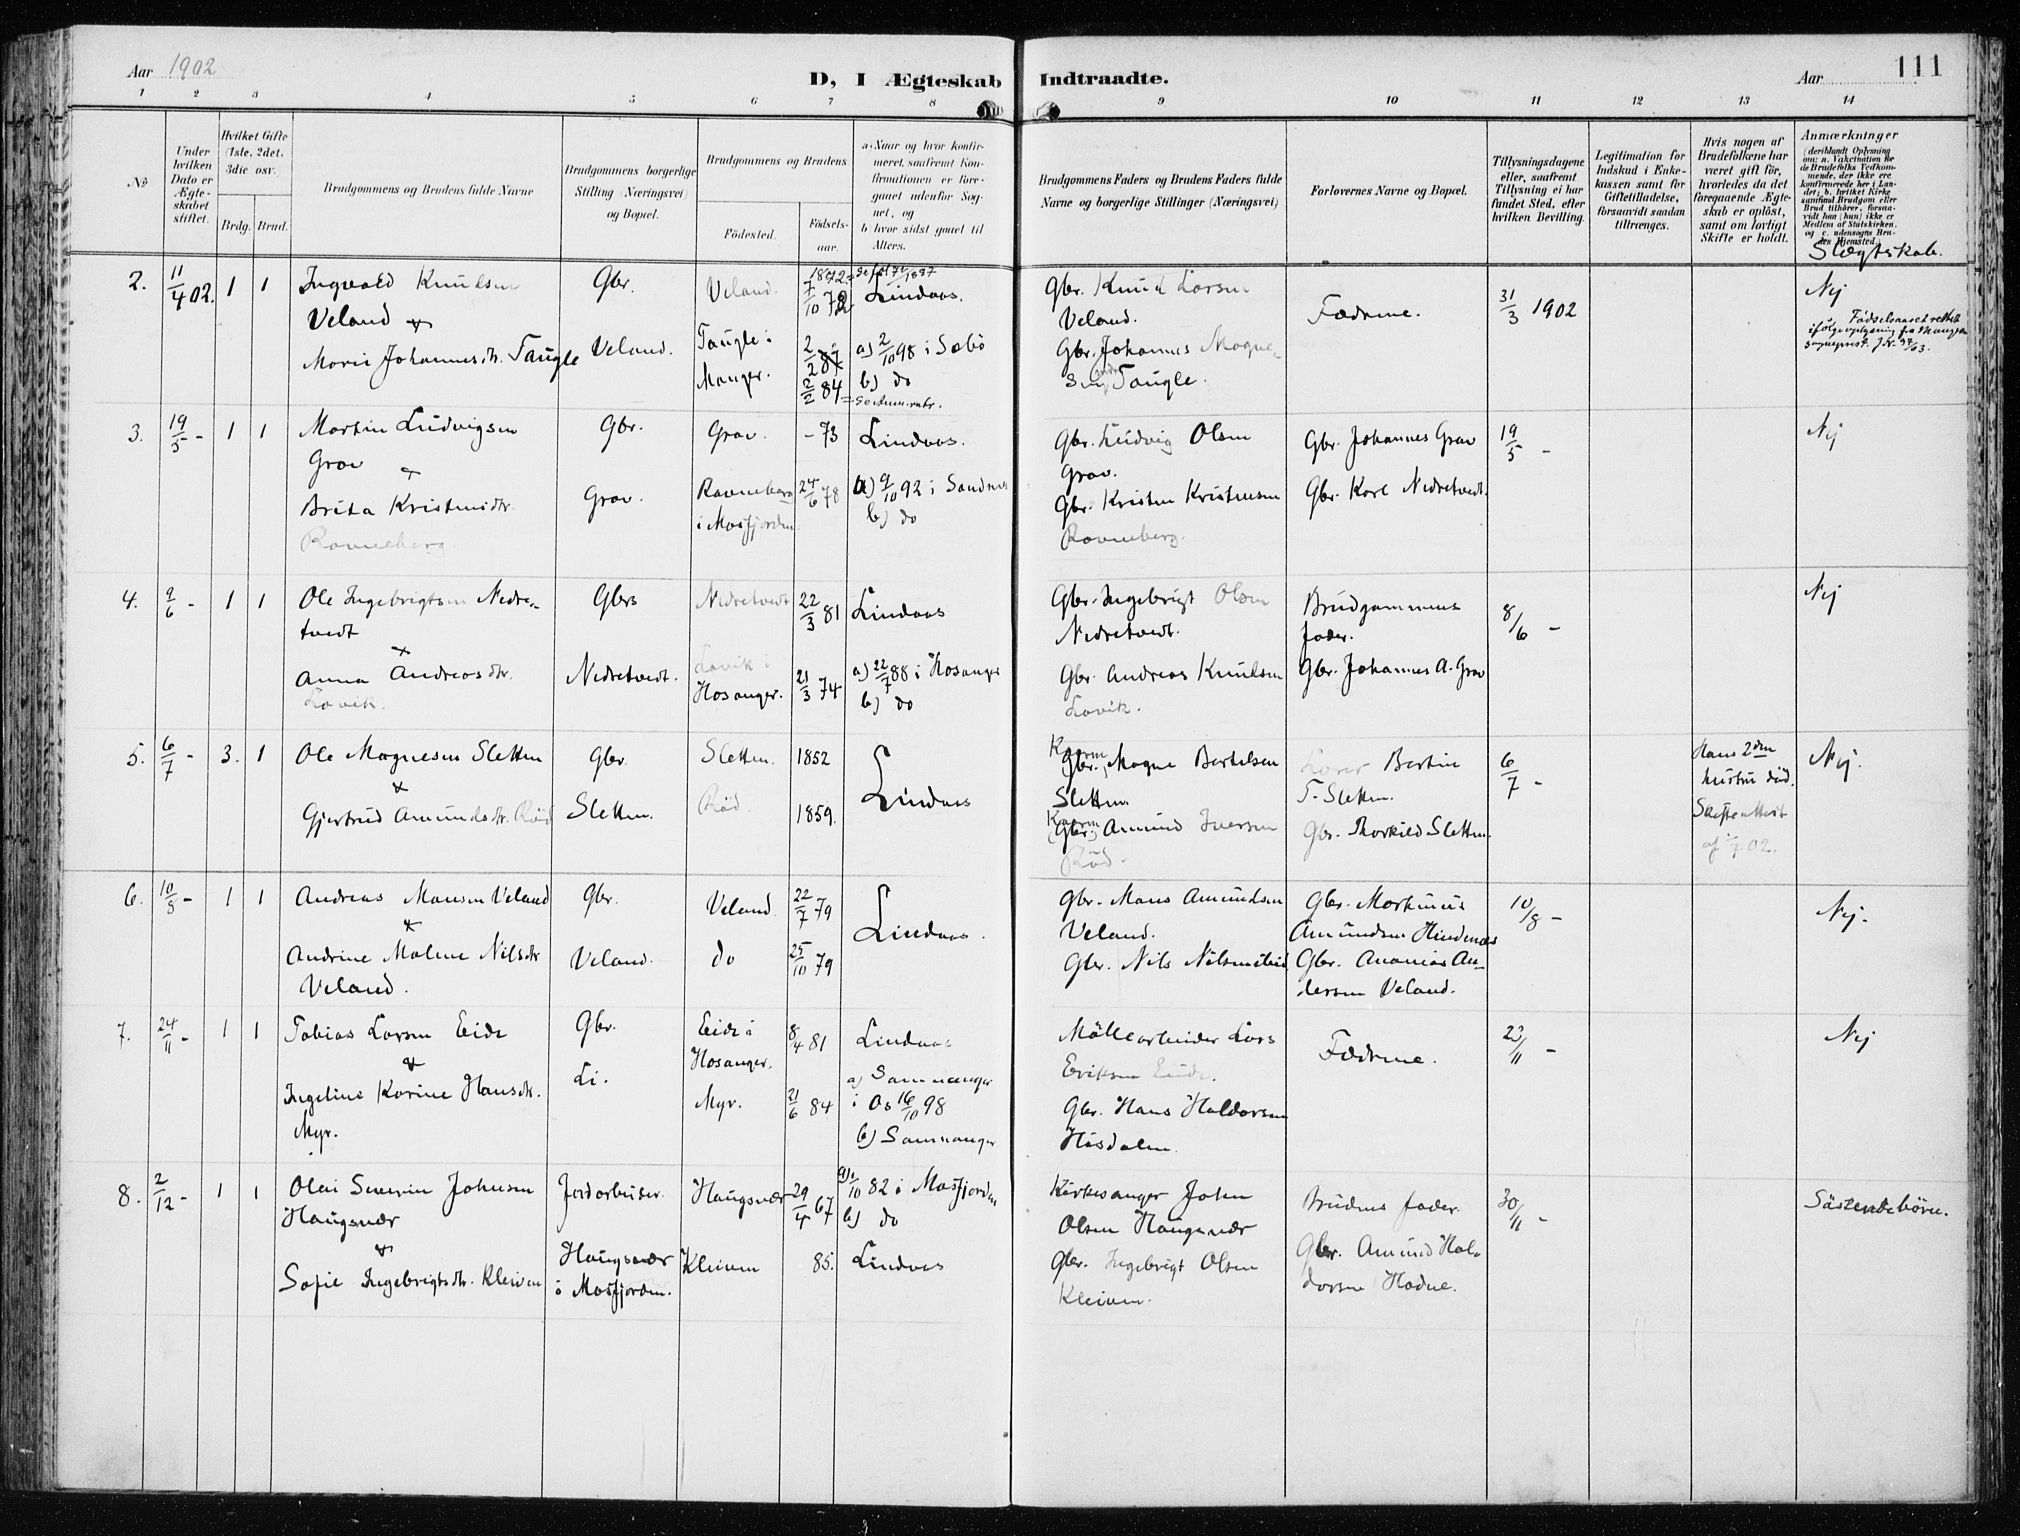 Aar 1902
D, I Ægteskab Indtraadte.
Aar
111
1 2 3 4 5 6 7 8 9 10 11 12 13 14
No
Under hvilken Dato er Ægteskabet stiftet.
Hvilket Gifte (1ste, 2det, 3die osv.
Brdg. Brud.
Brudgommens og Brudens fulde Navne
Brudgommens borgerlige Stilling (Næringsvei) og Bopæl.
Brudgommens og Brudens
Fødested.
Fødselsaar.
a. Naar og hvor konfirmeret, saafremt Konfirmationen er foregaaet udenfor Sognet, og
b hvor sidst gaaet til Alters.
Brudgommens Faders og Brudens Faders fulde Navne og borgerlige Stillinger (Næringsvei)
Forlovernes Navne og Bopæl.
Tillysningsdagene eller, saafremt Tillysning ei har fundet Sted, efter hvilken Bevilling.
Legitimation for Indskud i Enkekassen samt for Giftetilladelse, forsaavidt saadan tiltrænges.
Hvis nogen af Brudefolkene har været gift før, hvorledes da det foregaaende Ægteskab er opløst, samt om lovligt Skifte er holdt.
Anmærkninger
Slægtskab.
2. 11/4 02. 1 1
Ingvald Knudsen
Veland
&
Marie Johannesdtr. Taugle
Gbr.
Veland.
Veland.
Taugle i
Manger.
7/10 72
2/2 87
2/2 84
Lindaas.
a) 2/10 98 i Sæbö
b) do
Gbr. Knud Larsen
Veland.
Gbr. Johannes Magne-
Taugle.
Fædrene.
31/3 1902
Nej
Fødselsaaret rettet
3. 19/5 - 1 1
Martin Ludvigsen
Grav
&
Brita Kristensdtr.
Ravneberg.
Gbr.
Grav.
Grav.
Ravneberg
i Masfjorden.
- 73
24/6 78
Lindaas.
a) 9/10 92 i Sandnes
b) do
Gbr. Ludvig Olsen
Grav.
Gbr. Kristen Kristensen
Ravneberg.
Gbr. Johannes Grav
Gbr. Karl Nedretvedt.
19/5 -
Nej
4. 9/6 - 1 1
Ole Ingebrigtsen Nedre-
tvedt
&
Anna Andreasdtr.
Lavik.
Gbrs
Nedretvedt.
Nedretvedt
Lavik i
Hosanger.
22/3 81
21/3 74
Lindaas
a) 22/7 88 i Hosanger
b) do
Gbr. Ingebrigt Olsen
Nedretvedt.
Gbr. Andreas Knudsen
Lavik.
Brudgommens
fader.
Gbr. Johannes A. Grav
8/6 -
Nej
5. 6/7 - 3. 1
Ole Magnesen Sletten
&
Gjertrud Amundsdtr. Röd
Gbr.
Sletten.
Sletten.
Röd.
1852
1859.
Lindaas
Gbr. Magne Bertelsen
Sletten.
(Gbr.) Amund Iversen
Röd.
Lærer Bertin
T. Sletten.
Gbr. Thorkild Sletten.
6/7 -
Hans 2den
hustru död.
Skifteattest
af 1/7 02.
Nej.
6. 10/8 - 1 1
Andreas Monsen Veland
&
Andrine Malene Nilsdtr
Veland.
Gbr.
Veland.
Veland.
do
22/7 79
25/10 79
Lindaas.
Gbr. Mons Amundsen
Veland.
Gbr. Nils Nilsen
Gbr. Martinus
Amundsen Hindenæs
Gbr. Ananias An-
dersen Veland.
10/8 -
Nej.
7. 24/11 - 1 1
Tobias Larsen Eide
&
Ingeline Karine Hansdtr.
Myr.
Gbr.
Li.
Eide i
Hosanger.
Myr.
8/4 81
21/6 84
Lindaas
a) Samnanger
i Os 16/10 98
b) Samnanger
Möllearbeider Lars
Eriksen Eide.
Gbr. Hans Haldorsen
Høsdalen.
Fædrene.
23/11 -
Nej
8. 2/12 - 1 1
Olai Severin Johnsen
Haugsvær
&
Sofie Ingebrigtsdtr. Kleiven
Jordarbeider.
Haugsvær
i Masfjorden.
Haugsvær
Kleiven
29/4 67
85.
a) 1/10 82 i Masfjorden
b) do
Lindaas
Kirkesanger John
Olsen Haugsvær
Gbr. Ingebrigt Olsen
Kleiven.
Brudens fader.
Gbr. Amund Hal-
dorsen Hodne.
30/11 -
Söskendebörn.